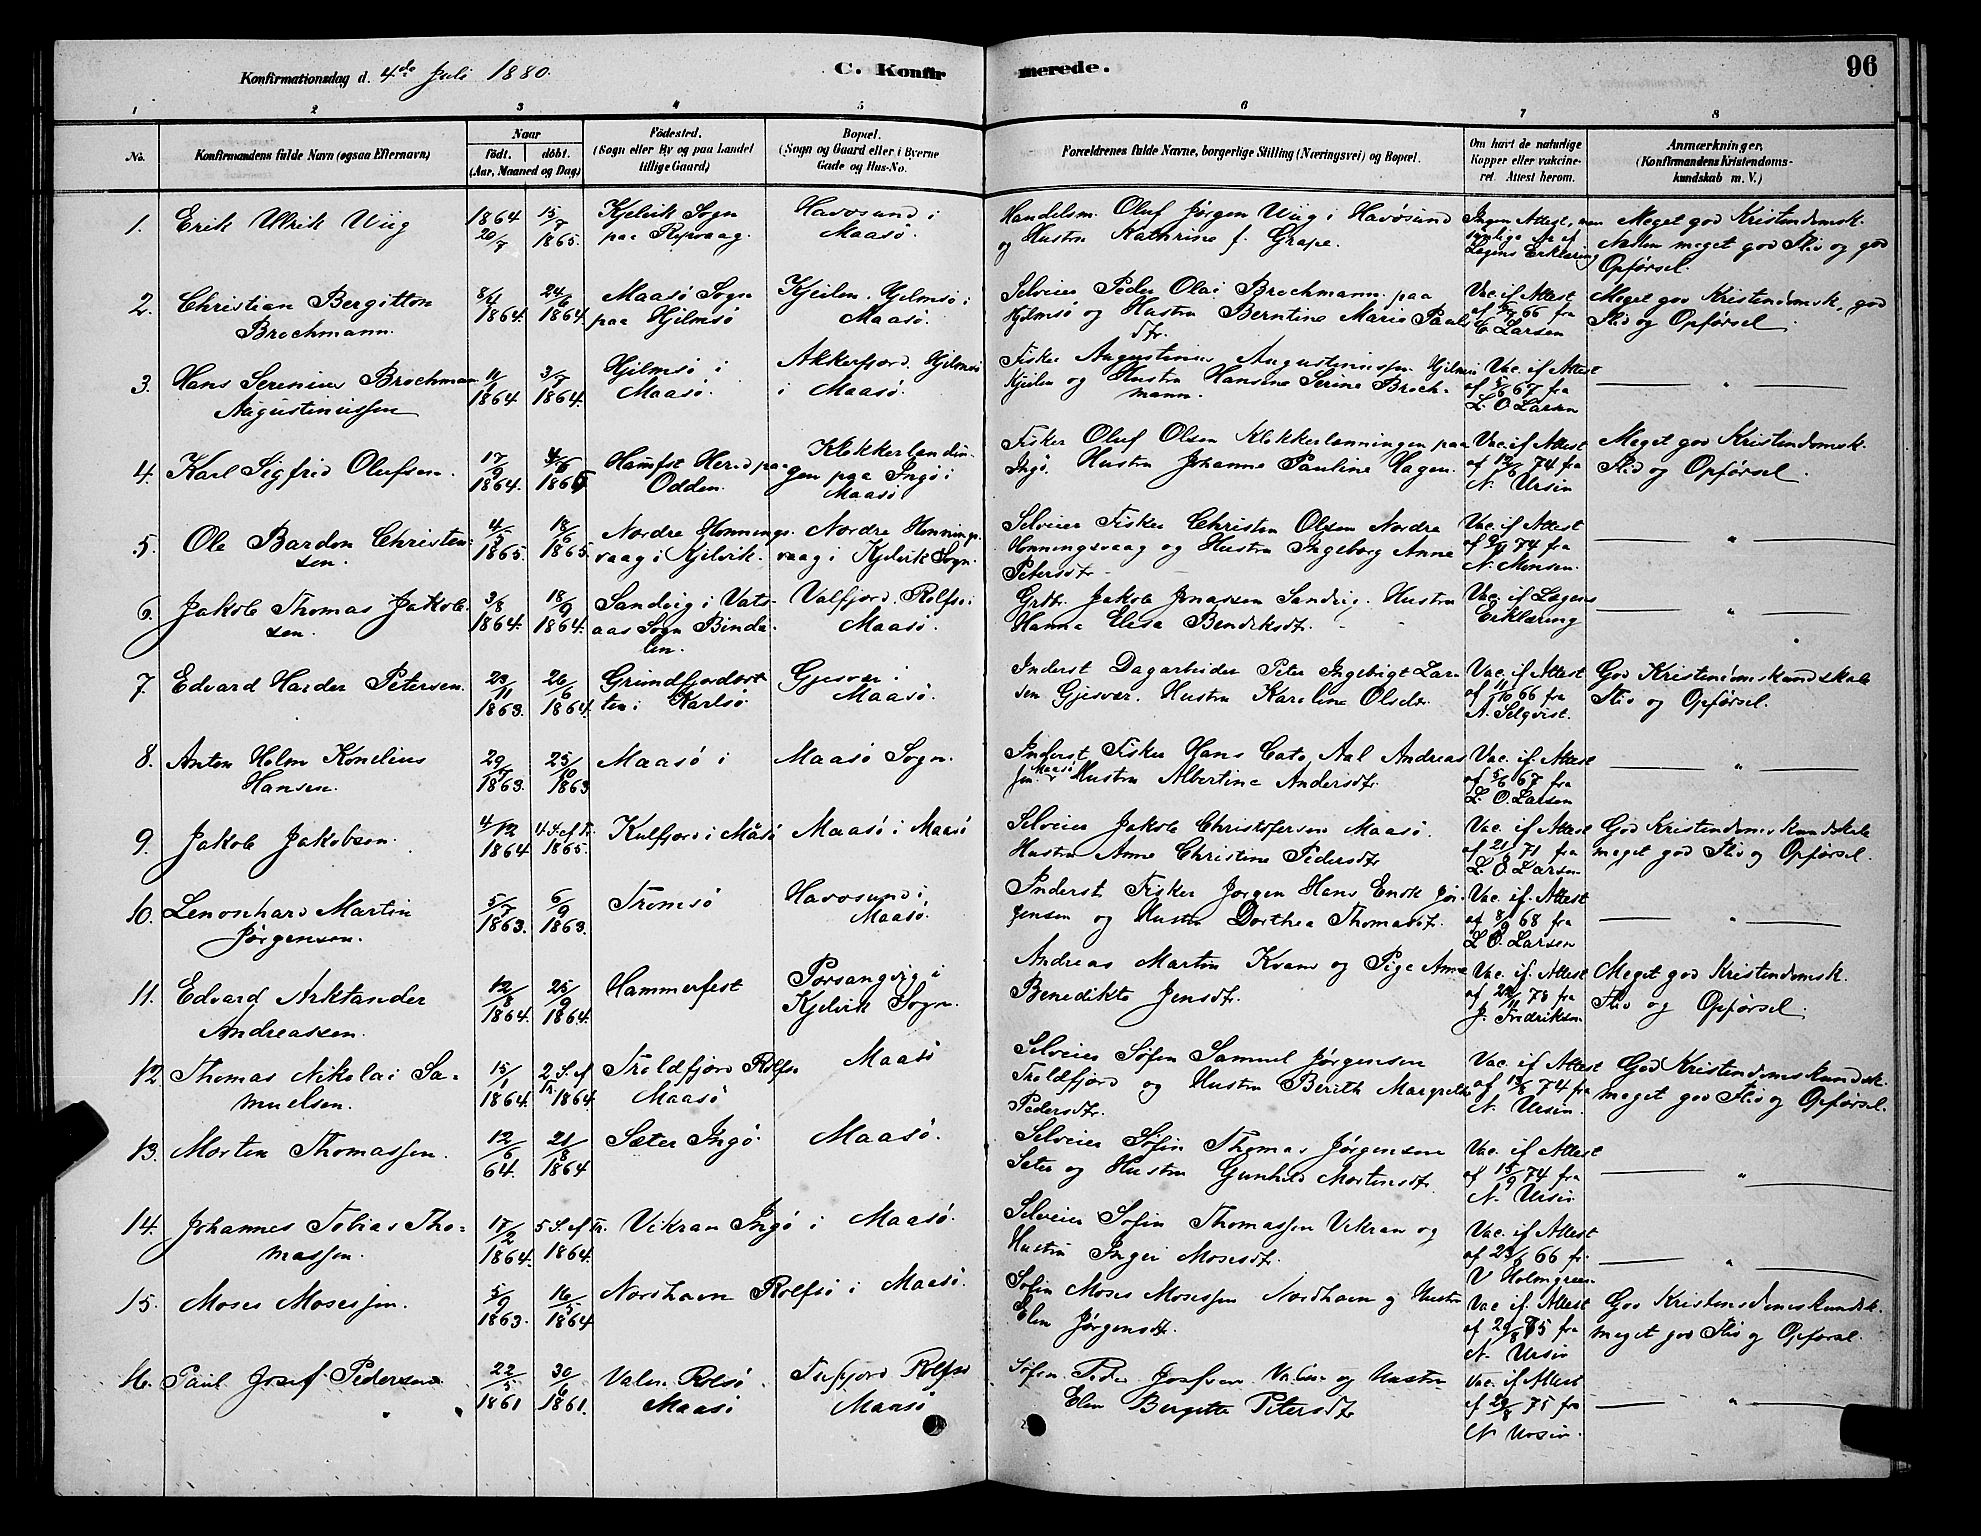 Konfirmationsdag d. 4de Juli 1880.
C. Konfirmerede.
96
1 2 3 4 5 6 7 8
No.
Konfirmandens fulde Navn (ogsaa Efternavn)
Naar
født. døbt.
(Aar, Maaned og Dag)
Fødested.
(Sogn eller By og paa Landet
tillige Gaard)
Bopæl.
(Sogn og Gaard eller i Byerne
Gade og Hus-No.
Forældrenes fulde Navne, borgerlige Stilling (Næringsvei) og Bopæl.
Om havt de naturlige
Kopper eller vakcine-
ret. Attest herom.
Anmærkninger,
(Konfirmandens Kristendoms-
kundskab m. V.)
1. Erik Ulrik Wiig
1864 20/7
15/7 1865.
Kjelvik Sogn
paa Repvaag.
Havøsund i
Maasø.
Handelsm. Oluf Jørgen Wiig i Havøsund
og Hustru Kathrine f. Grape.
Ingen Attest, men
synlige Ar ef
Lægens Erklæring
Meget god Kristendomsk.
meget god Flid og god
Opførsel.
2. Christian Bergitton
Brochmann.
8/4 1864.
24/6 1864.
Maasø Sogn
paa Hjelmsø
Kjeilen. Hjelmsø i
Maasø.
Selveier Peder Olai Brochmann paa
Hjelmsø og Hustru Berntine Marie Pauls
dtr.
Vac. if Attest
66 fra
C. Larsen
Meget god Kristendomsk., god
Flid og Opførsel
3. Hans Serenius Brochman
Augustinussen
11/ 1864
3/7 1864.
Hjelmsø i
Maasø.
Akkerfjord. Hjelmsø
i Maasø.
Fisker Augustinus Augustinussen Hjelmsø
Kjeilen og Hustru Hansine Serine Broch-
mann.
Vac. if Attest
af 5/6 67 fra
L. O. Larsen
— " —
4. Karl Sigfrid Olufsen.
17/9 1864.
Hamfst Hered paa
Odden.
Klokkerlandin-
gen paa Ingø i
Maasø
Fisker Oluf Olsen Klokkerlanningen paa
Ingø. Hustru Johanne Pauline Hagen.
Vac. if Attest
af 12/6 74 fra
N. Ursin
Meget god Kristendomsk.
Flid og Opførsel.
5. Ole Bardon Christen-
sen.
4/3 1865.
18/6 1865.
Nordre Honnings-
vaag i Kjelvik.
Nordre Honnings-
vaag i Kjelvik Sogn.
Selveier Fisker Christen Olsen Nordre
Honningsvaag og Hustru Ingeborg Anne
Petersdtr
Vac. if Attest
74 fra
N. Monsen.
— " —
6. Jakob Thomas Jakob-
sen.
3/8 1864.
18/9 1864.
Sandvig i Vats-
aas Sogn Binda-
len.
Valfjord. Rolfsø i
Maasø.
Grbr. Jakob Jonassen Sandvig. Hustru
Hanna Elisa Bendiksdtr.
Vac. if Lægens
Erklæring
— " —
7. Edvard Harder Petersen.
23/11 1863.
26/6 1864.
Grundfjordbot-
ten i Karlsø
Gjesvær i
Maasø.
Inderst Dagarbeider Peter Ingebrigt Lar-
sen Gjesvær. Hustru Karoline Olsdtr.
Vac. if Attest
af 11/10 66 fra
A. Selqvist.
God Kristendomskundskab
Flid og Opførsel.
8. Anton Holm Kornelius
Hansen.
29/7 1863.
25/10 1863
Maasø i
Maasø Sogn.
Inderst Fisker Hans Cato Aal Andreas
sen Maasø. Hustru Albertine Andersdtr.
Vac. if Attest
af 5/6 67 fra
L. O. Larsen
— " —
9. Jakob Jakobsen.
4/12 1864
4 S. ef Tr. 1865.
Kulfjord i Måsø
Maasø i Maasø
Selveier Jakob Christofersen Maasø.
Hustru Anne Christine Pedersdtr
Vac. if Attest
71 fra
L. O. Larsen
God Kristendomskundskab
meget god Flid og Opførsel.
10. Lenonhard Martin
Jørgensen.
5/7 1863.
6/9 1863.
Tromsø
Havøsund i
Maasø.
Inderst Fisker Jørgen Hans Enok Jør-
gensen og Hustru Dorthea Thomasdtr.
Vac. if. Attest
af 8/9 68 fra
L. O. Larsen
— " —
11. Edvard Arktander
Andreassen.
12/8 1864.
25/9 1864.
Hammerfest
Porsangvig i
Kjelvik Sogn.
Andreas Martin Kvam og Pige Anne
Benedikte Jensdtr.
Vac. if. Attest
fra
J. Fredriksen
Meget god Kristendomsk.
Flid og Opførsel.
12 Thomas Nikolai Sa-
muelsen.
15/1 1864.
2 S. ef Tr. 1864
Troldfjord Rolfsø
Maasø
Maasø
Selveier Søfin Samuel Jørgensen
Troldfjord og Hustru Berith Margrethe
Pedersdtr.
Vac. if Attest
74 fra
N. Ursin.
God Kristendomskundsk.
meget god Flid og Opførsel.
13. Morten Thomassen.
12/6 64.
21/8 1864
Sæter Ingø.
Maasø.
Selveier Søfin Thomas Jørgensen
Seter og Hustru Gunhild Mortensdtr.
Vac. if Attest
af 15/9 74 fra
N. Ursin
— " —
14. Johannes Tobias Tho-
massen.
17/2 1864.
5 S. ef Tr. 1864.
Vikran Ingø i Maasø.
Selveier Søfin Thomassen Vikran og
Hustru Inger Mosesdtr.
Vac. if Attest
66 fr.
V Holmgreen
— " —
15. Moses Mosessen.
5/9 1863.
16/5 1864
Nordhavn Rolfsø i Maasø.
Søfin Moses Mosessen Nordhavn og Hustru
Elen Jørgensdtr.
Vac if. Attest
af 29/8 75 fra
N. Ursin
God Kristensdomskundsk.
meget god Flid og Opførsel.
16. Paul Josef Pedersen
22/5 1861
30/6 1861.
Valen Rolsø
Maasø
Tufjord Rolfsø
Maasø
Søfin Peder Josefsen Valen og Hustru
Elen Bergitte Petersdtr
Vac. if Attest
ef 29/8 75 fra
N Ursin.
— " —